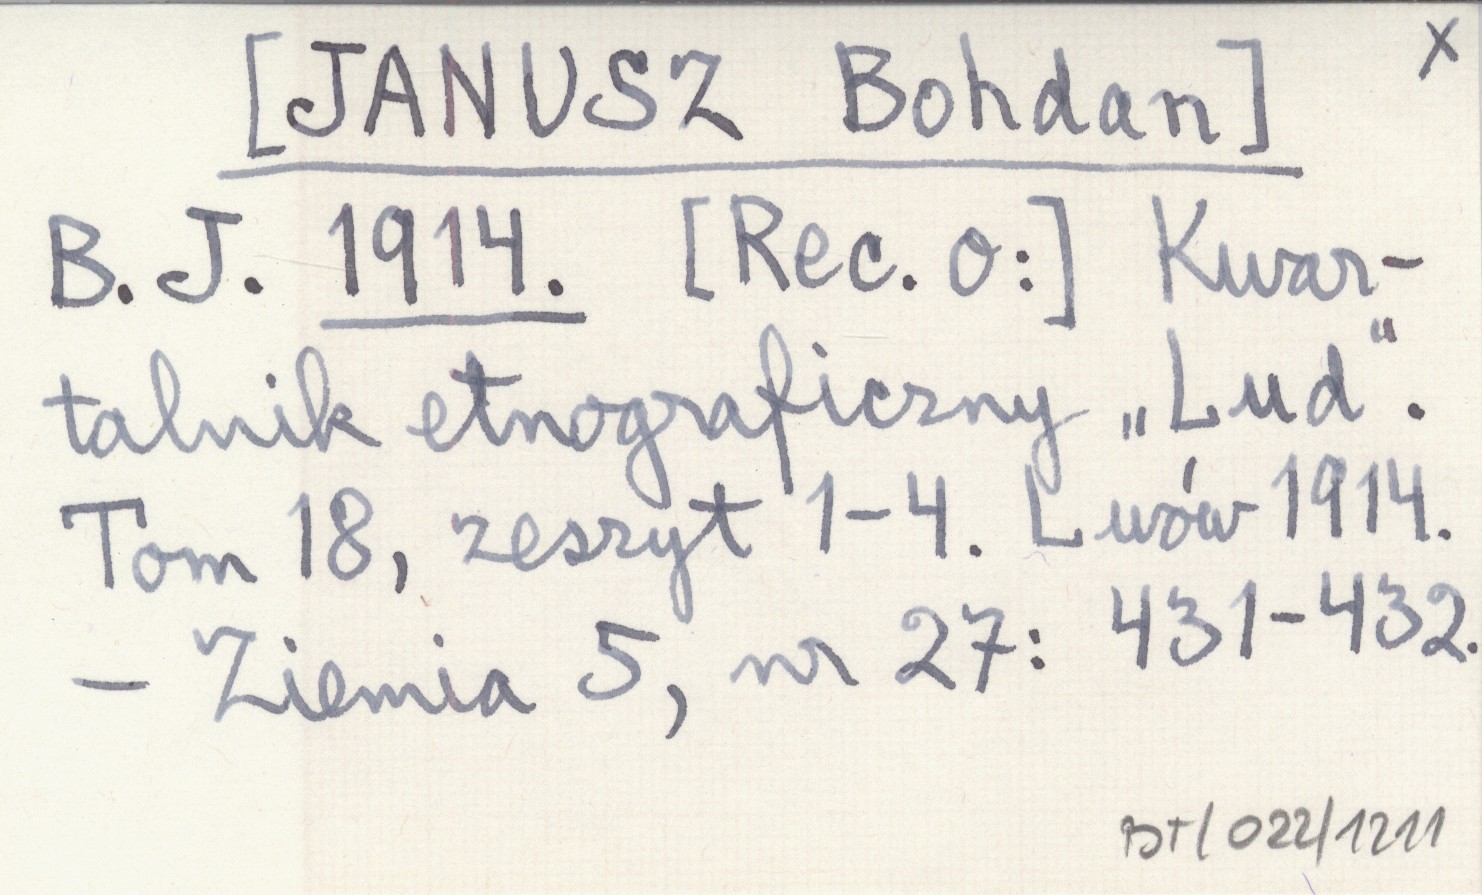 [JANUSZ Bohdan] x
B. J. 1914. [Rec. o:] Kwar-
talnik etnograficzny „Lud“.
Tom 18, zeszyt 1-4. Lwów 1914.
— Ziemia 5, nr 27: 431-432.
BT/022/1211